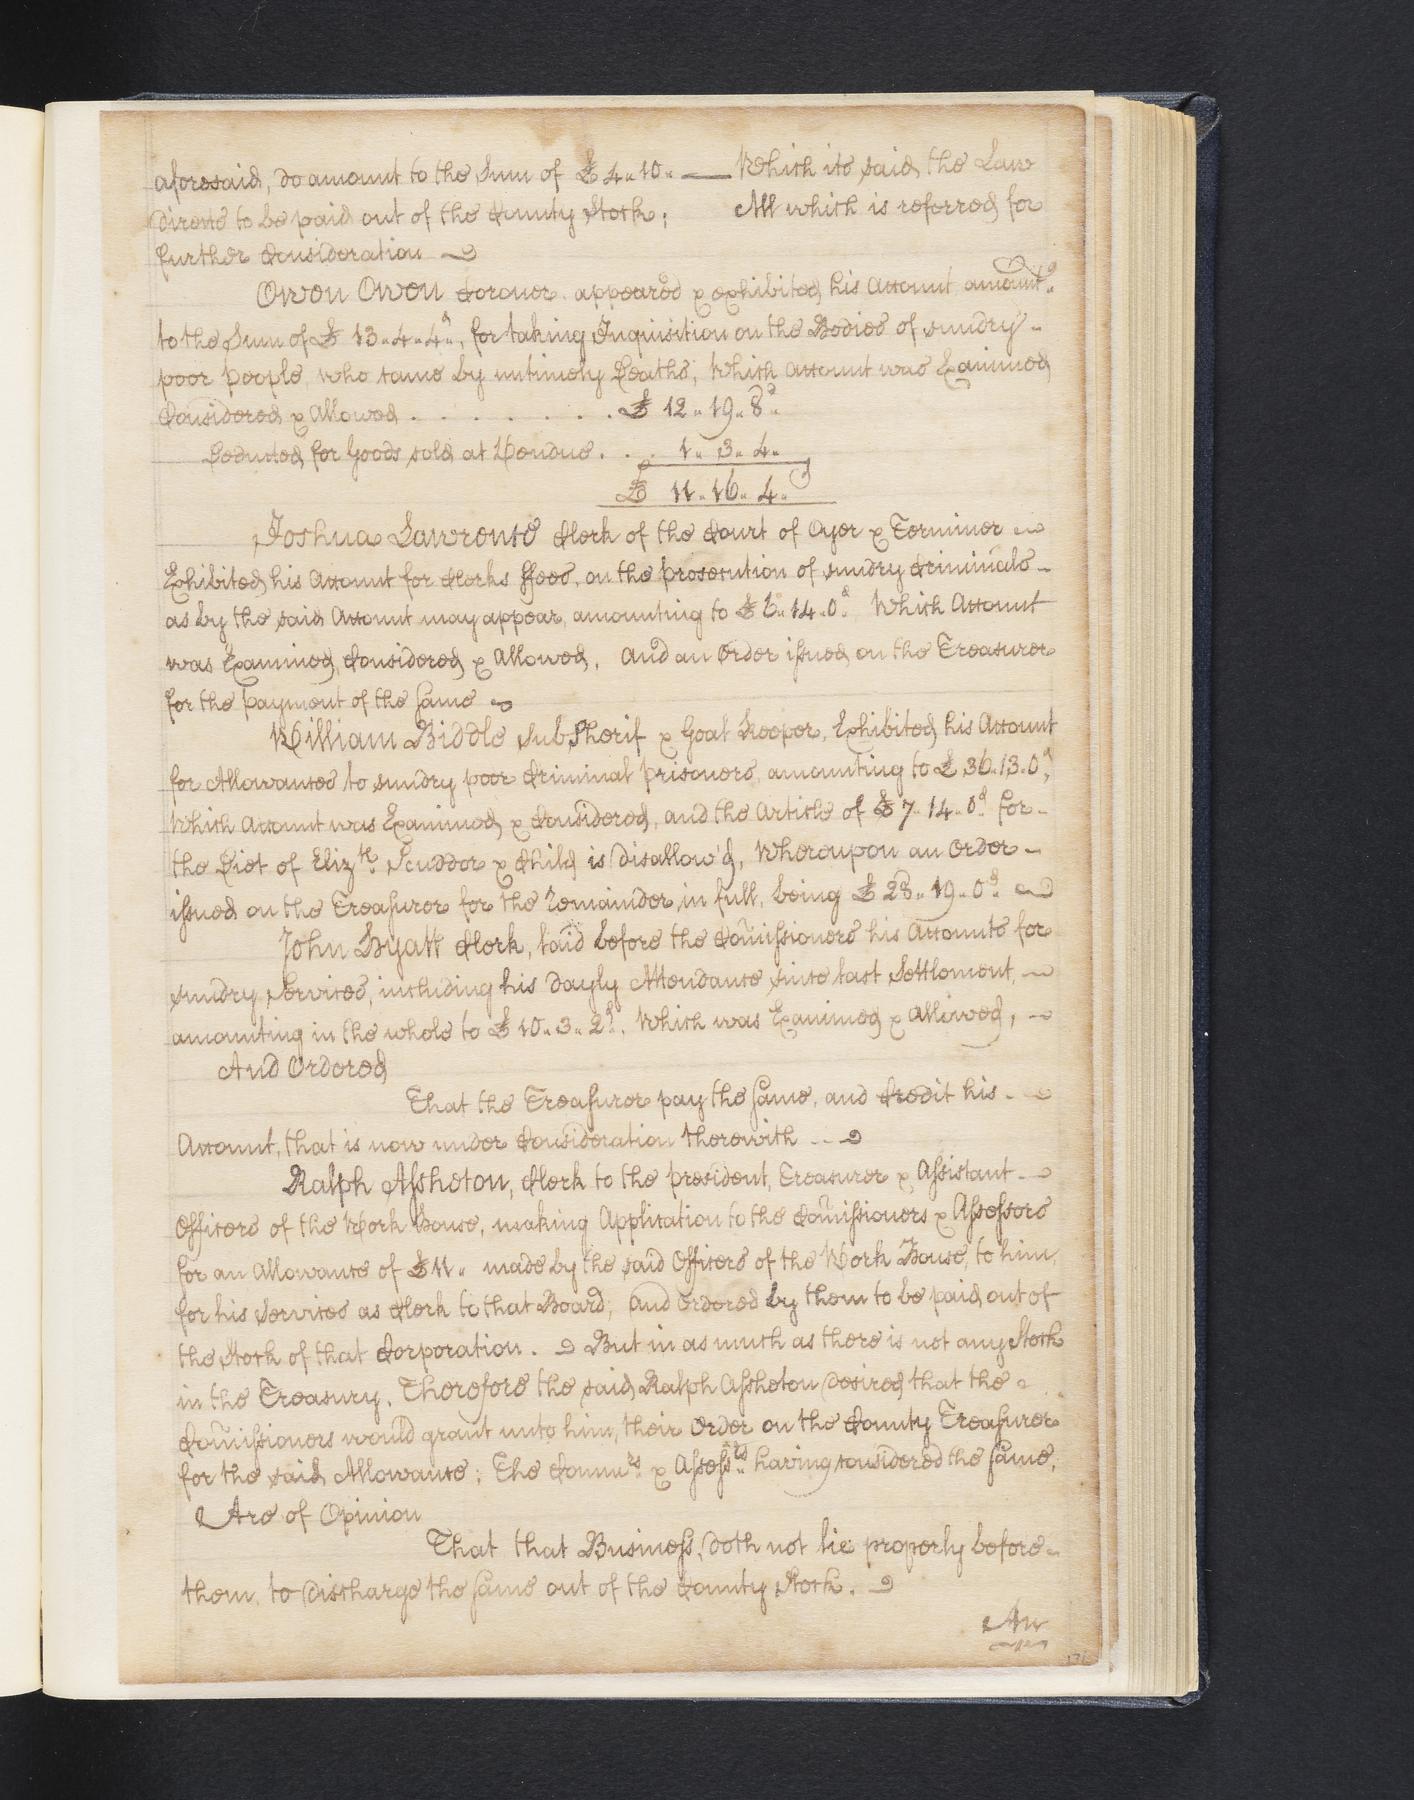 aforesaid, do amount to the Sum of £ 4„10„ — Which its said the Law
directs to be paid out of the County Stock; All which is referred for
further Consideration
Owen Owen Coroner appeared & exhibited his Account amount.g
to the Sum of £ 13„4„4d, for taking Inquisition on the Bodies of sundry
poor People, who came by untimely Deaths; Which Account was Examined
Considered & Allowed . . . . . . . . £ 12„19„8d
Deducted for Goods sold at Vendue . . . 1„3„4„
£ 11„16„4„
Joshua Lawrence Clerk of the Court of Oyer & Terminer
Exhibited his Account for Clerks ffees, on the Prosecution of sundry Criminals
as by the said Account may appear, amounting to £ 6„14„0d Which Account
was Examined, Considered & Allowed, And an Order issued on the Treasurer
for the Payment of the same
William Biddle Sub Sherif & Goal Keeper, Exhibited his Account
for Allowances to sundry poor Criminal prisoners, amounting to £ 36„13„0d,
Which Account was Examined & Considered, and the Article of £ 7„14„0d for
the Diet of Elizth Scudder & Child is disallow'd, Whereupon an Order
issued on the Treasurer for the remainder in full, being £ 28„19„0d
John Hyatt Clerk, laid before the Com̃issioners his Accounts for
sundry Services, including his dayly Attendance since last Settlement,
amounting in the whole to £ 10„3„2d. Which was Examined & Allowed,
And Ordered
That the Treasurer pay the same, and Credit his
Account, that is now under Consideration therewith
Ralph Assheton, Clerk to the President, Treasurer & Assistant
Officers of the Work House, making Application to the Com̃issioners & Assessors
for an Allowance of £ 11„ made by the said Officers of the Work House, to him,
for his Services as Clerk to that Board; and Ordered by them to be paid out of
the Stock of that Corporation. But in as much as there is not any Stock
in the Treasury. Therefore the said Ralph Assheton desired that the
Com̃issioners would grant unto him, their Order on the County Treasurer
for the said Allowance; The Commrs & Assessrs having considered the same,
Are of Opinion
That that Business, doth not lie properly before
them, to discharge the same out of the County Stock.
An